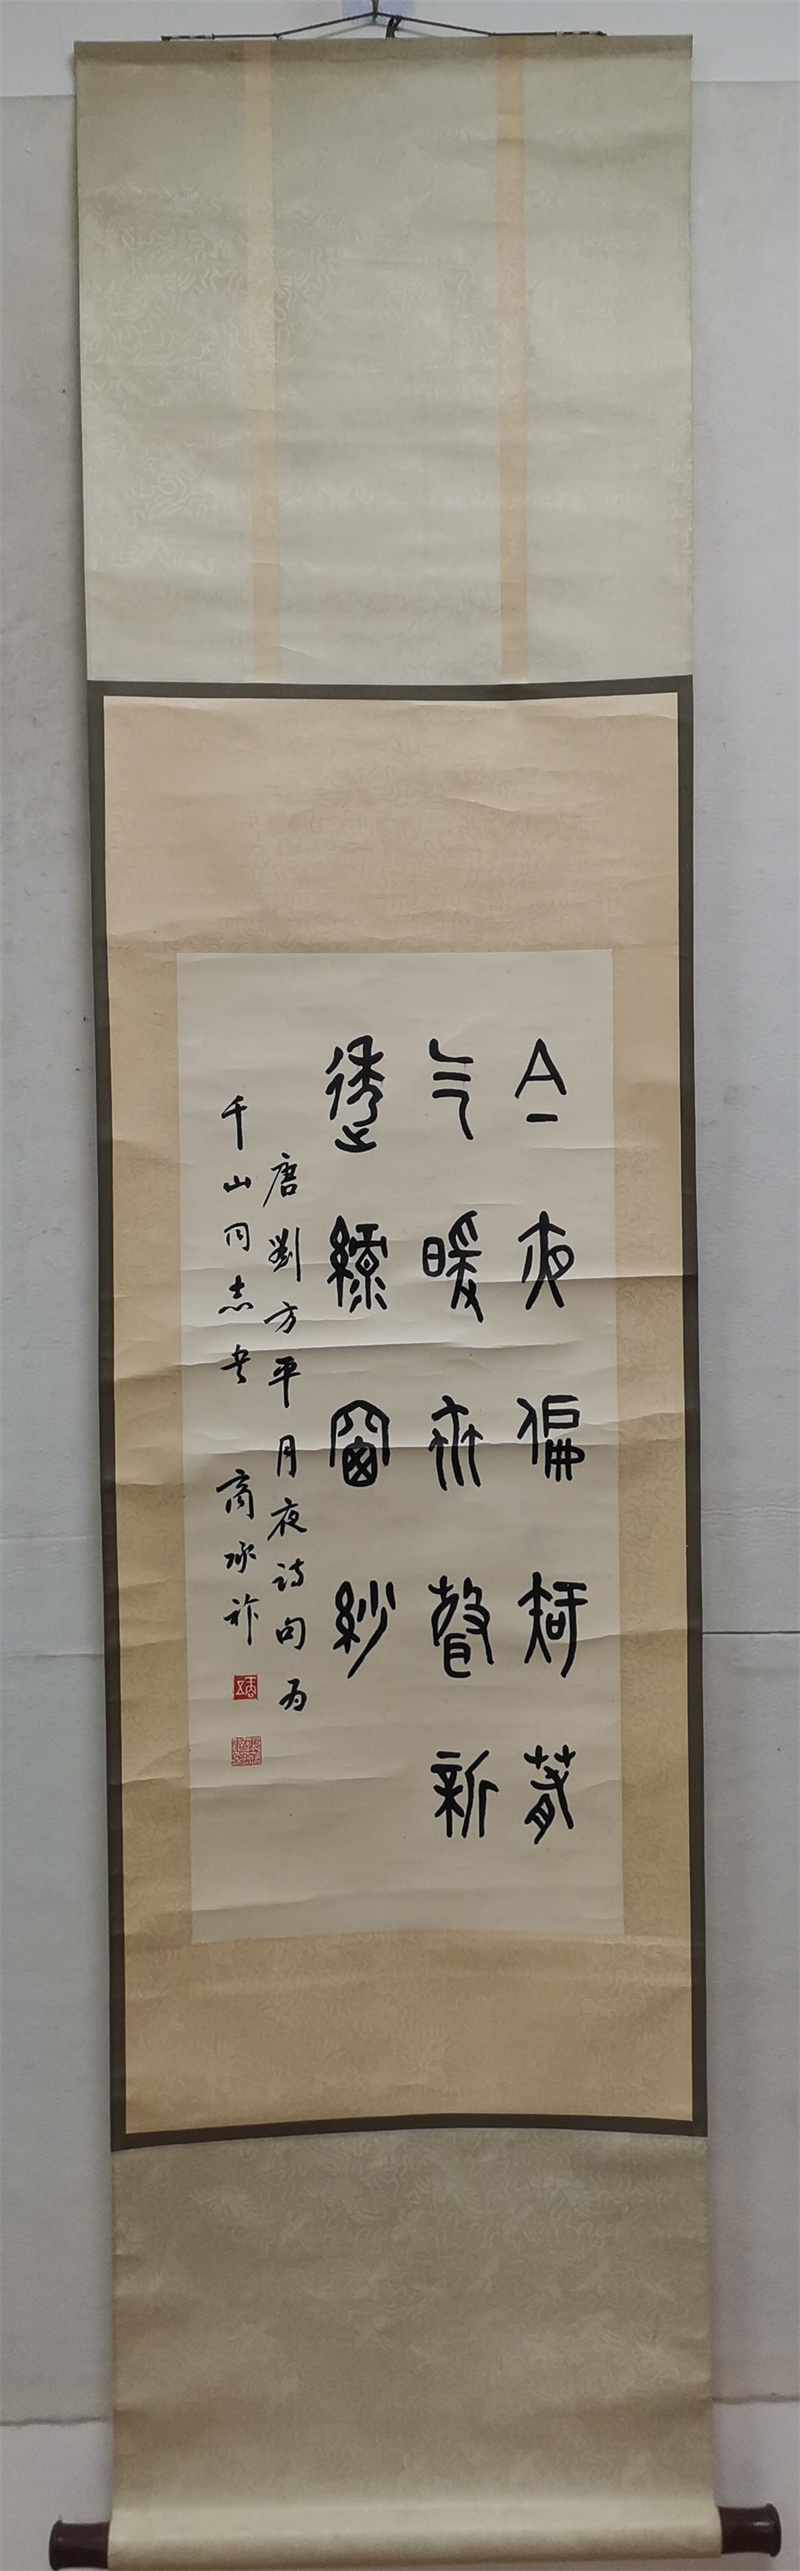 今夜偏知萅
气暖虫聲新
透綠窗紗
唐劉方平月夜詩句为
千山同志书 商承祚